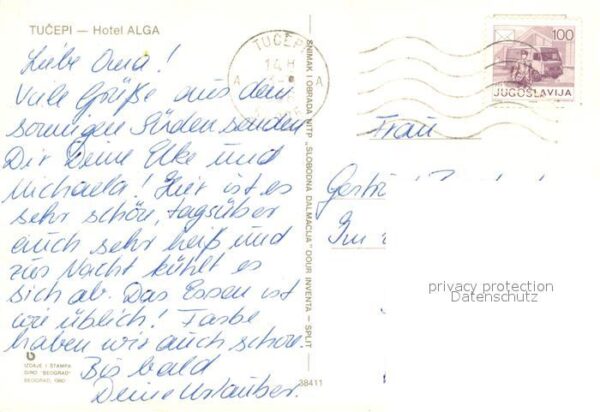 TUČEPI — Hotel ALGA
Liebe Oma!
Viele Grüße aus dem
sonnigen Süden senden
Dir Deine Elke und
Michaela! Hier ist es
sehr schön, tagsüber
auch sehr heiß und
zur Nacht kühlt es
sich ab. Das Essen ist
wie üblich! Farbe
haben wir auch schon.
Bis bald
Deine Urlauber.
IZDAJE I ŠTAMPA
BEOGRAD, 1980
SNIMAK I OBRADA NITP „SLOBODNA DALMACIJA" OOUR INVENTA — SPLIT
38411
TUČEPI
14 H
A A
100
JUGOSLAVIJA
Frau
privacy protection
Datenschutz